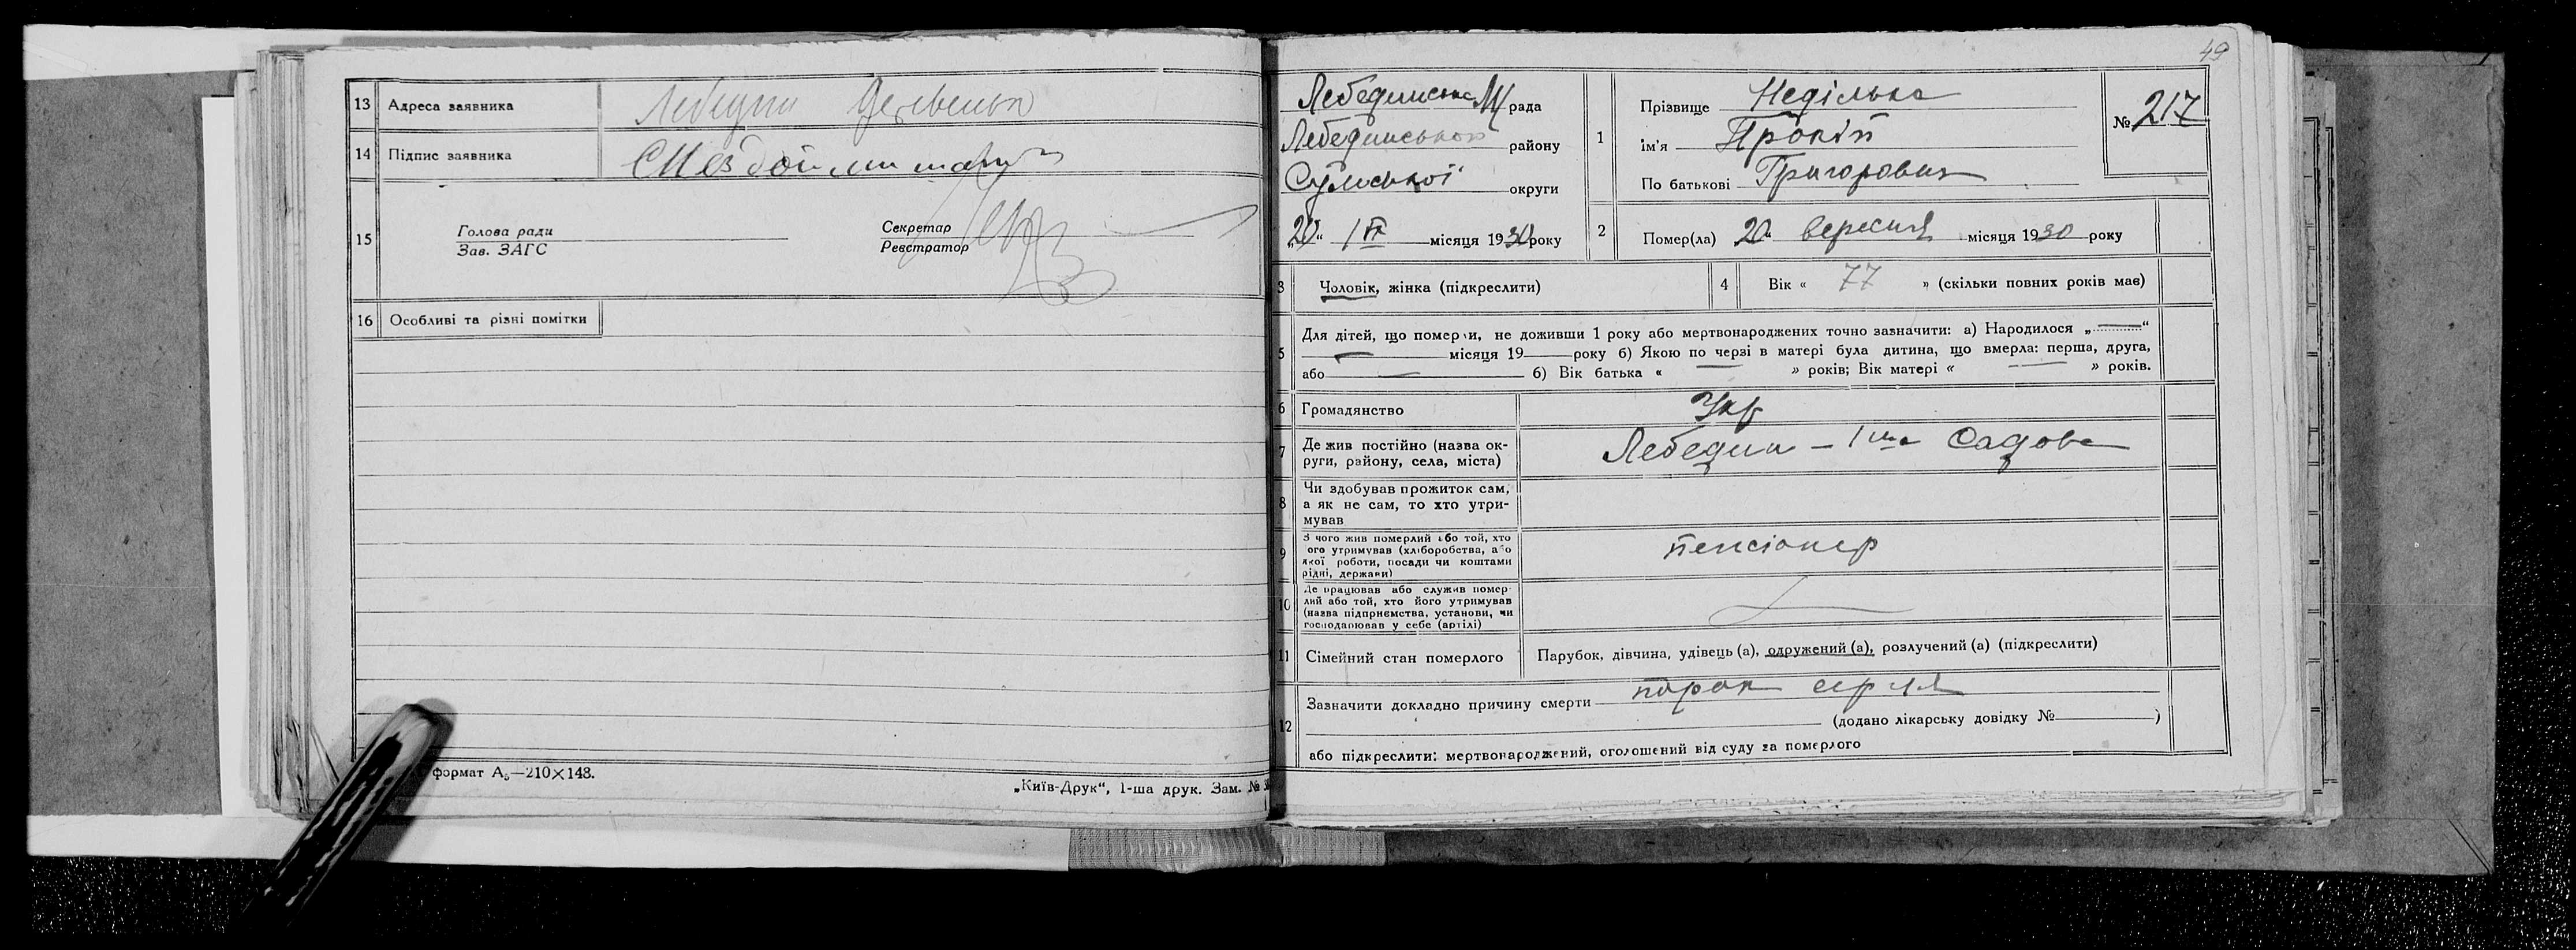 13 Адреса заявника Лебедин
14 Підпис заявника
15 Голова ради
Зав. ЗАГС
Секретар
Реєстратор
16 Особливі та різні помітки
формат А5—210×148.
„Київ-Друк“, 1-ша друк. Зам. №
49
Лебединська М рада
Лебединського району
Сумської округи
„20“ IX місяця 1930 року
1 Прізвище Неділько
ім'я Прокіп
По батькові Григорович
№ 217
2 Помер(ла) 20 вересня місяця 1930 року
3 Чоловік, жінка (підкреслити)
4 Вік « 77 » (скільки повних років має)
5 Для дітей, що померли, не доживши 1 року або мертвонароджених точно зазначити: а) Народилося „—“
— місяця 19— року б) Якою по черзі в матері була дитина, що вмерла: перша, друга,
або — б) Вік батька « — » років; Вік матері « — » років.
6 Громадянство Укр
7 Де жив постійно (назва ок-
руги, району, села, міста) Лебедин – 1ша Садова
8 Чи здобував прожиток сам,
а як не сам, то хто утри-
мував
9 З чого жив померлий або той, хто
ого утримував (хліборобства, або
якої роботи, посади чи коштами
рідні, держави) пенсіонер
10 Де працював або служив помер-
лий або той, хто його утримував
(назва підприємства, установи, чи
господарював у себе (артілі)
11 Сімейний стан померлого Парубок, дівчина, удівець (а), одружений (а), розлучений (а) (підкреслити)
12 Зазначити докладно причину смерти порок серця
(додано лікарську довідку № )
або підкреслити: мертвонароджений, оголошений від суду за померлого